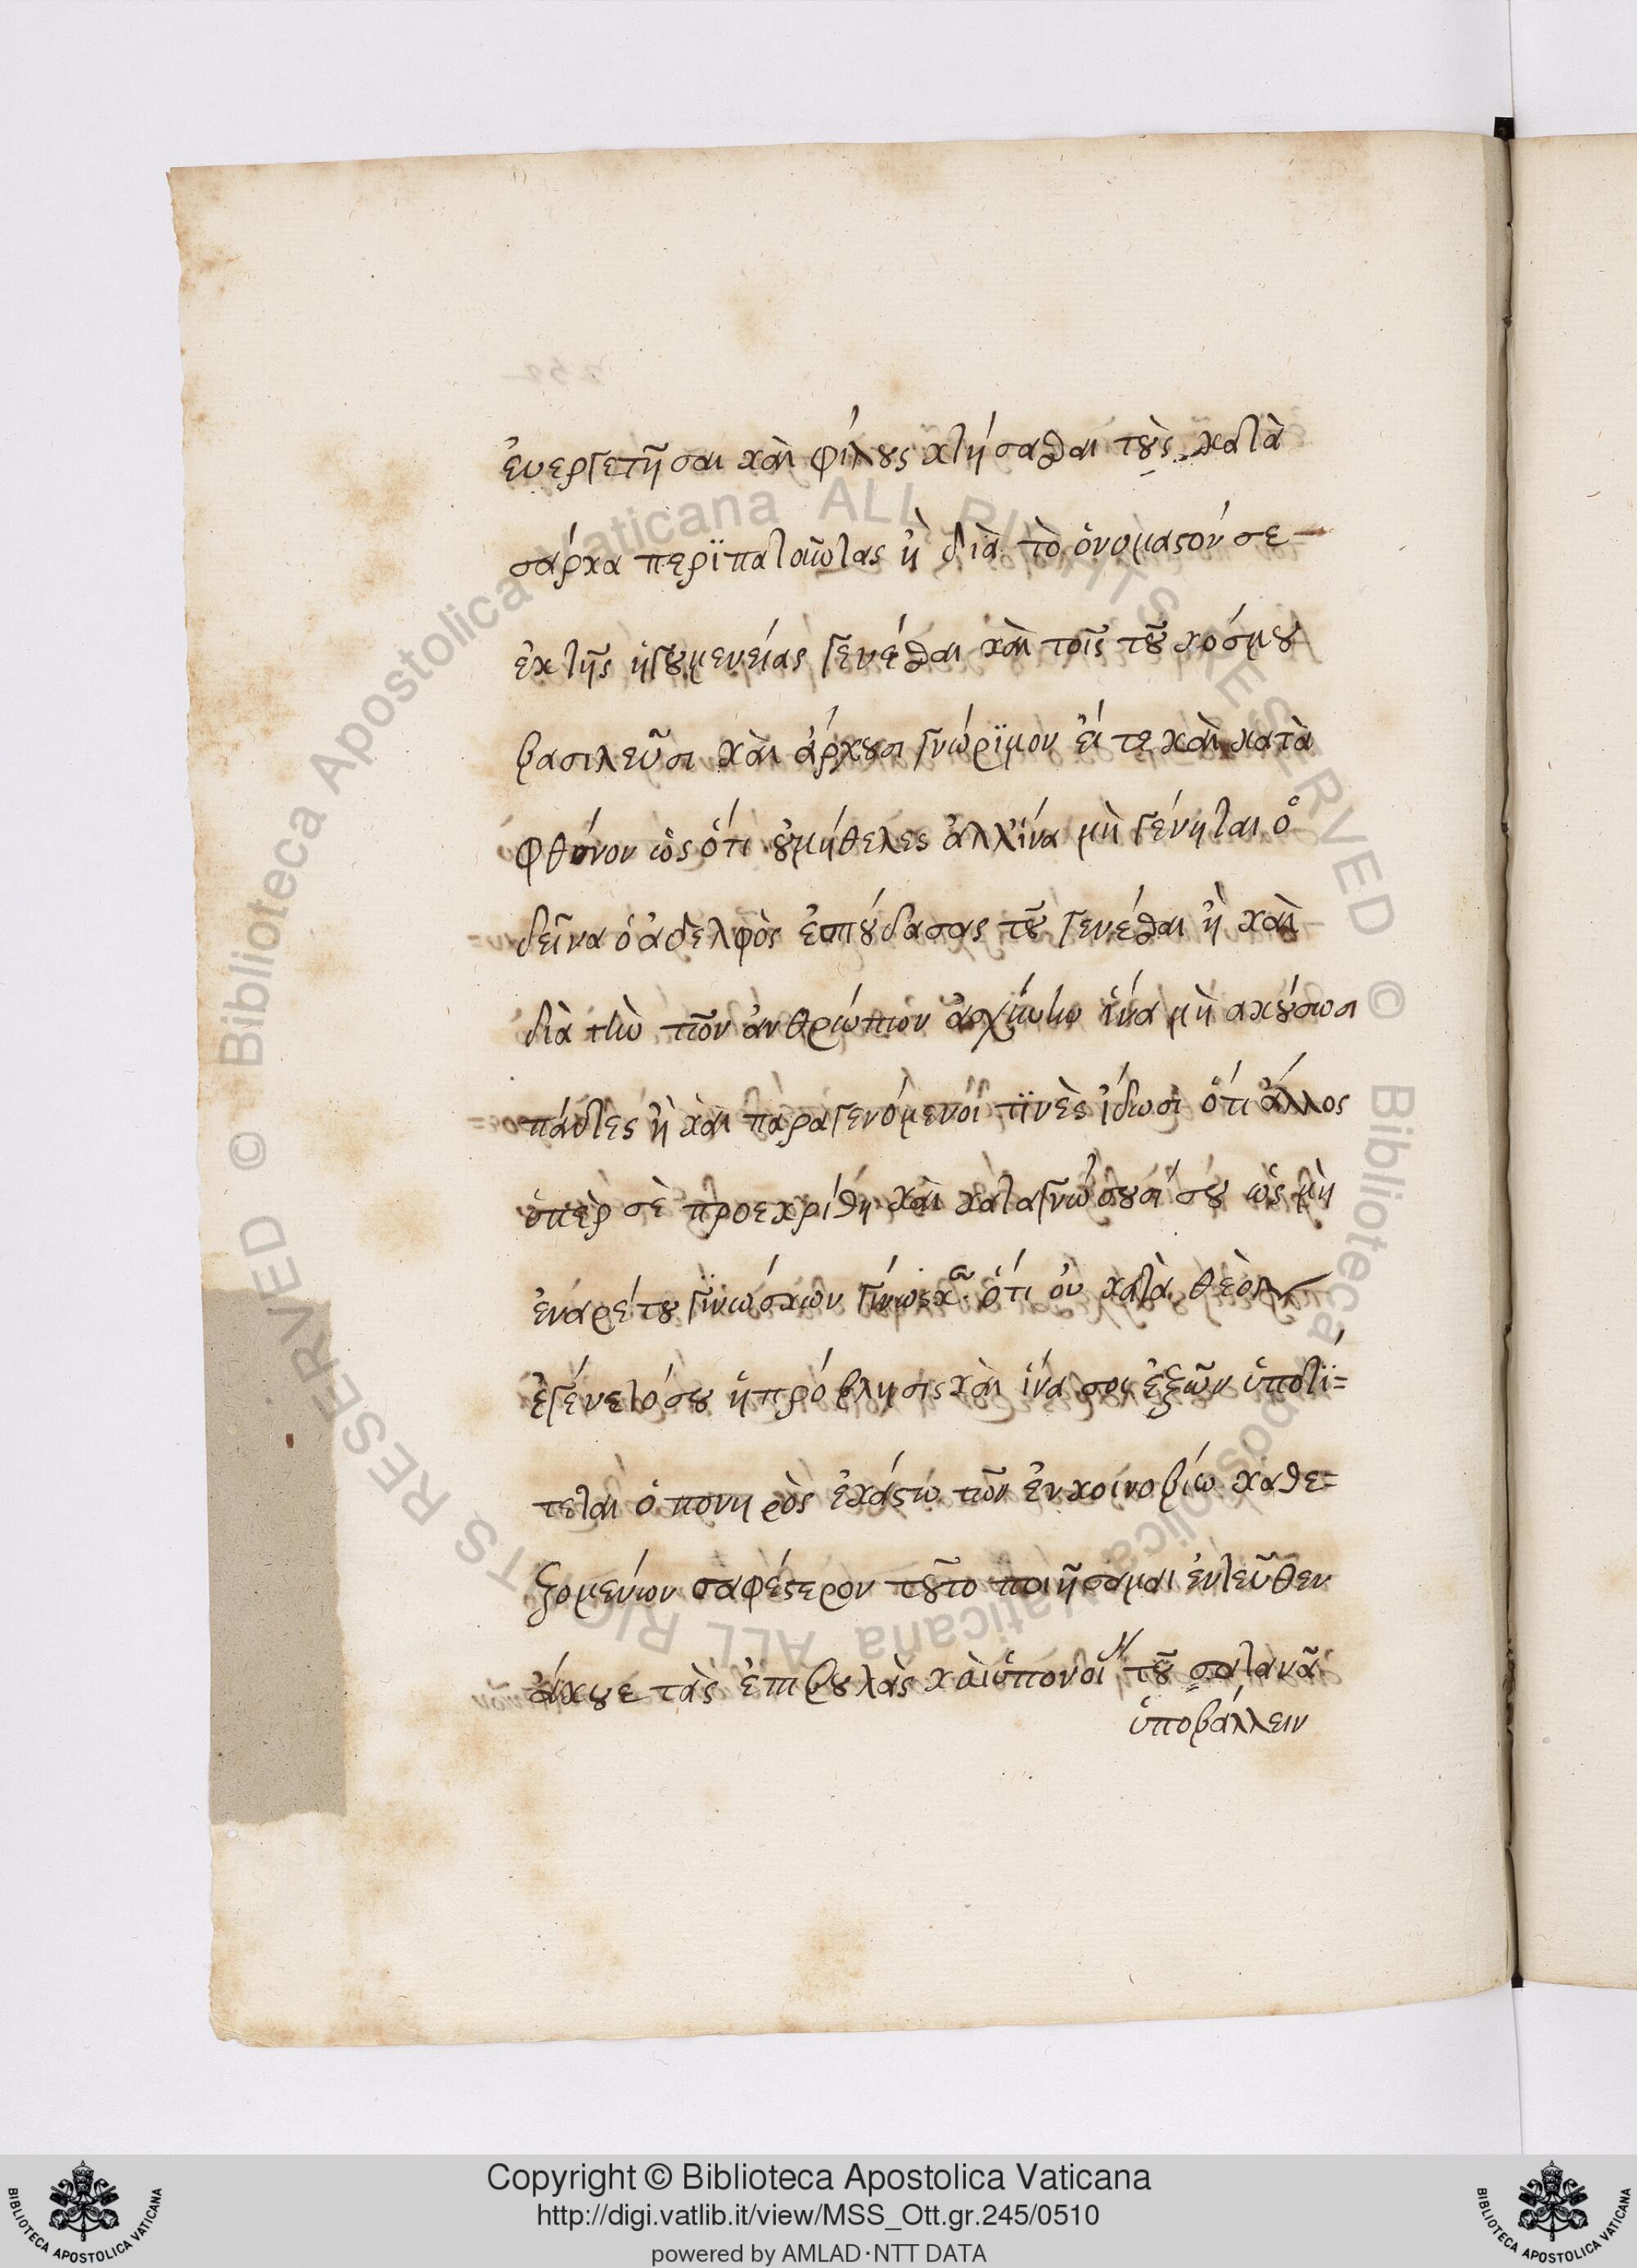 ἐυεργετῆσαι καὶ φίλους κτήσασθαι τοὺς κατὰ
σάρκα περϊπατοῦντας ἢ διὰ τὸ ὀνομαστόν σε
ἐκ τῆς ἡγουμενείας γενέσθαι καὶ τοῖς τοῦ κόσμου
βασιλεῦσι καὶ ἄρχουσι γνώρϊμον εἴ τε καὶ κατὰ
φθόνον ὡς ὅτι οὐμήθελες ἀλλΐνα μὴ γένηται ὁ
δεῖνα ὁ ἀδελφὸς ἐσπούδασας τοῦ γενέσθαι ἢ καὶ
διὰ τὴν τῶν ἀνθρώπων ἀσχύνην ἵνα μὴ ακούσωσι
πάντες ἢ καὶ παραγενόμενοί τϊνὲς ἰδωσὶ ὅτι ἄλλος
ὑπὲρ σὲ προεκρίθη καὶ καταγνώσουσί σου ὡς μὴ
ἐναρέτου γϊνώσκων γίνωσκε ὅτι οὐ κατὰ θεὸν
ἐγένετό σου ἡ πρόβλησις καὶ ἵνα σοι ἐξῶν ὑποτϊ=
τεται ὁ πονηρὸς ἑκάστω τῶν ἐν κοινοβίω καθε=
ζομένων σαφέστερον τοῦτο ποιήσωμαι ἐντεῦθεν
ἄκουε τὰς ἐπιβουλὰς καὶ ὑπονοί τοῦ σατανᾶ
ὑποβάλλειν
Copyright © Biblioteca Apostolica Vaticana
http://digi.vatlib.it/view/MSS_Ott.gr.245/0510
powered by AMLAD·NTT DATA
BIBLIOTECA APOSTOLICA VATICANA
BIBLIOTECA APOSTOLICA VATICANA
© Biblioteca Apostolica Vaticana ALL RIGHTS RESERVED © Biblioteca Apostolica Vaticana ALL RIGHTS RESERVED